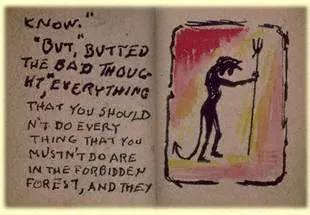 KNOW."
"BUT," BUTTED
THE BAD THOUG-
HT, "EVERYTHING
THAT YOU SHOULD
N'T DO EVERY
THING THAT YOU
MUSTN'T DO ARE
IN THE FORBIDDEN
FOREST, AND THEY